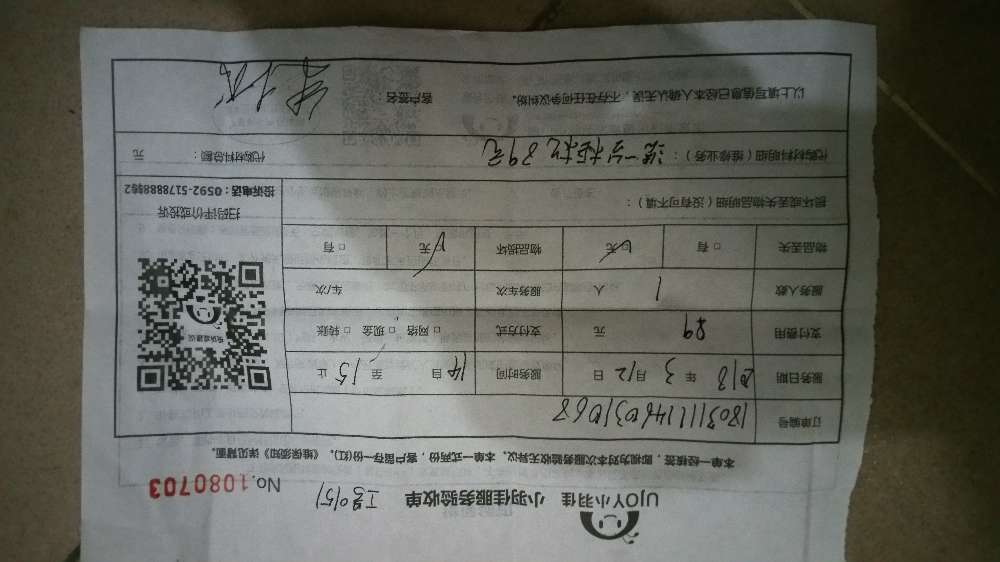 UJOY小羽佳 小羽佳服务验收单 工号0151 No.1080703
本单一经核签，即视为对本次服务验收无异议。本单一式两份，客户留存一份(红)。《维保须知》详见背面。
订单编号
服务日期 2018 年 3 月 12 日 服务时间 14 自 至 15 止
支付费用 89 元 支付方式 □ 网络 □ 现金 □ 转账
服务人数 1 人 服务车次 车/次
物品丢失 □ 有 □ 无 物品损坏 □ 有 □ 无
损坏或丢失物品明细（没有可不填）：
扫码评价或投诉
投诉电话：0592-5178888转2
代购材料明细（维修业务）： 代购材料总额： 元
以上填写信息已经本人确认无误，不存在任何争议纠纷。 客户签名：